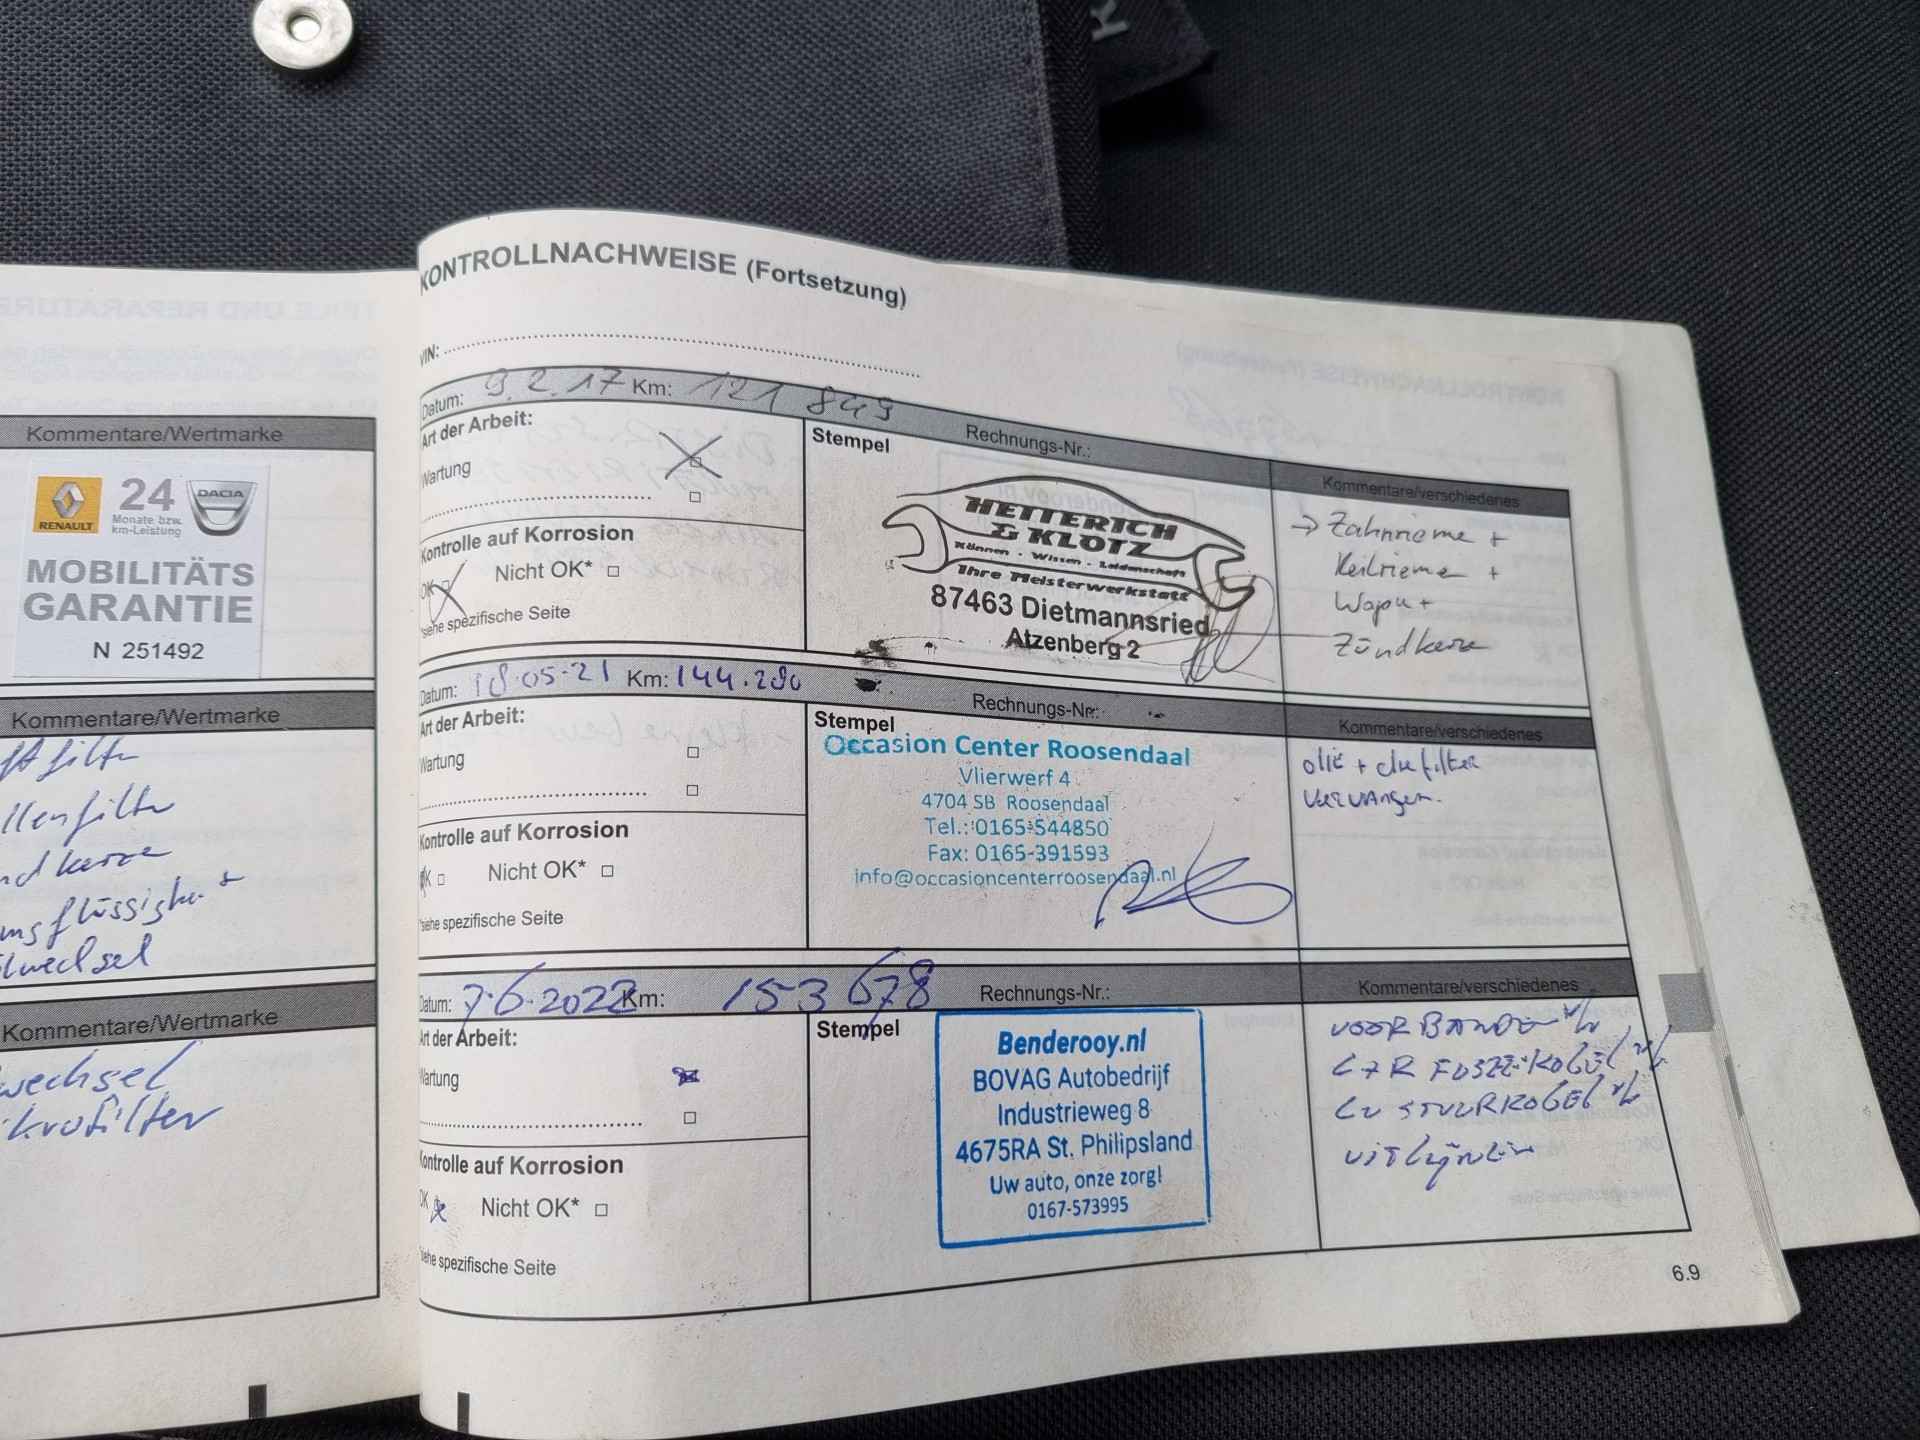 Kommentare/Wertmarke
RENAULT
24
Monate bzw.
km-Leistung
DACIA
MOBILITÄTS
GARANTIE
N 251492
Kommentare/Wertmarke
Kommentare/Wertmarke
KONTROLLNACHWEISE (Fortsetzung)
VIN:
Datum: 9.2.17 Km: 121 849
Art der Arbeit:
Wartung
Kontrolle auf Korrosion
OK Nicht OK*
*siehe spezifische Seite
Stempel
Rechnungs-Nr.:
HETTERICH
& KLOTZ
Können - Wissen - Leidenschaft
Ihre Meisterwerkstatt
87463 Dietmannsried
Atzenberg 2
Kommentare/verschiedenes
→ Zahnrieme +
Keilrieme +
Wapu +
Zündkerze
Datum: 18-05-21 Km: 144.280
Art der Arbeit:
Wartung
Kontrolle auf Korrosion
OK Nicht OK*
*siehe spezifische Seite
Stempel
Rechnungs-Nr.:
Occasion Center Roosendaal
Vlierwerf 4
4704 SB Roosendaal
Tel.: 0165-544850
Fax: 0165-391593
info@occasioncenterroosendaal.nl
Kommentare/verschiedenes
olie + oliefilter
vervangen.
Datum: 7-6-2022 Km: 153 678
Art der Arbeit:
Wartung
Kontrolle auf Korrosion
OK Nicht OK*
*siehe spezifische Seite
Stempel
Rechnungs-Nr.:
Benderooy.nl
BOVAG Autobedrijf
Industrieweg 8
4675RA St. Philipsland
Uw auto, onze zorg!
0167-573995
Kommentare/verschiedenes
VOORBANDEN
L+R FUSEEKOGEL
LV STUURKOGEL
UITLIJNEN
6.9